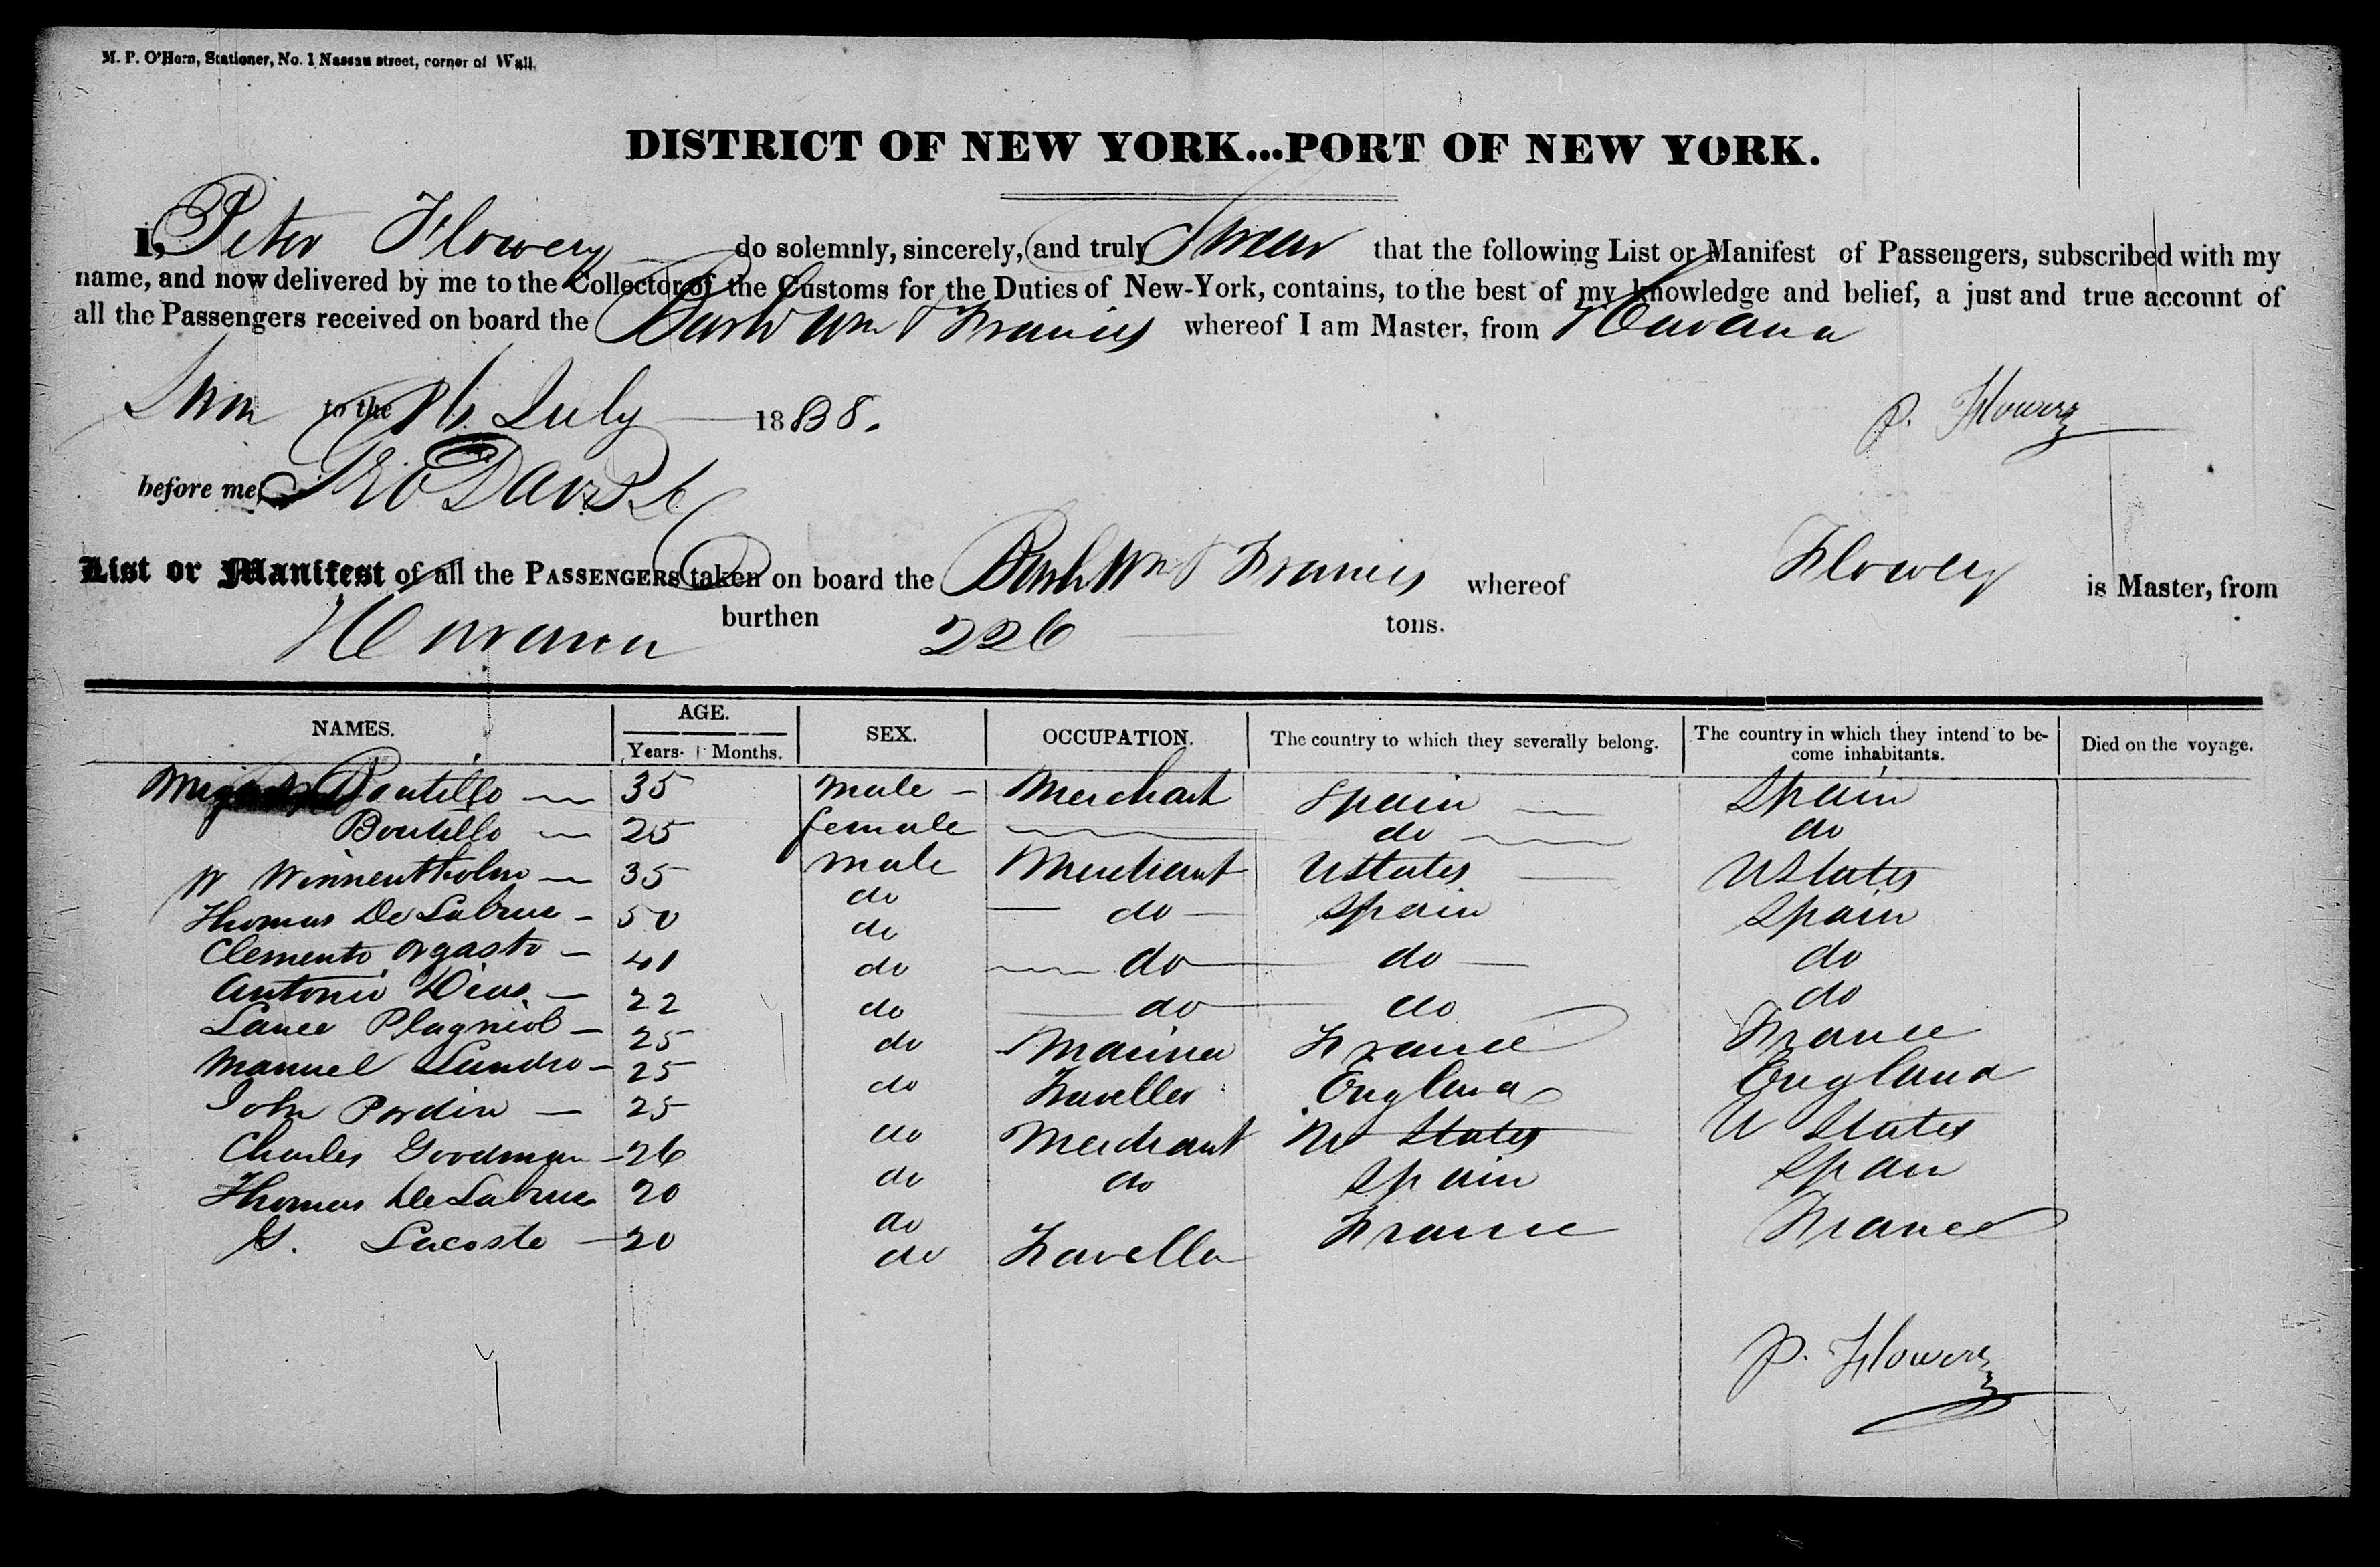 M. P. O'Horn, Stationer, No. 1 Nassau street, corner of Wall.
DISTRICT OF NEW YORK...PORT OF NEW YORK.
I, Peter Flowery do solemnly, sincerely, and truly Swear that the following List or Manifest of Passengers, subscribed with my
name, and now delivered by me to the Collector of the Customs for the Duties of New-York, contains, to the best of my knowledge and belief, a just and true account of
all the Passengers received on board the Bark Wm & Francis whereof I am Master, from Havana
to the 16 July 1838.
P. Flowery
before me, Geo Davis
List or Manifest of all the PASSENGERS taken on board the Bark Wm & Francis whereof Flowery is Master, from
Havana burthen 226 tons.
NAMES. AGE. Years. Months. SEX. OCCUPATION. The country to which they severally belong. The country in which they intend to become inhabitants. Died on the voyage.
35 male Merchant Spain Spain
25 female do do
W 35 male Merchant UStates UStates
Thomas De Labrue 50 do do Spain Spain
Clemento Orgasto 41 do do do do
Antonio Dias 22 do do do do
Plagniol 25 do Mariner France France
Manuel 25 do Traveller England England
John Pordin 25 do Merchant U States U States
Charles Goodman 26 do do Spain Spain
Thomas De Labrue 20 do France France
G. Lacoste 20 do Traveller
P. Flowery